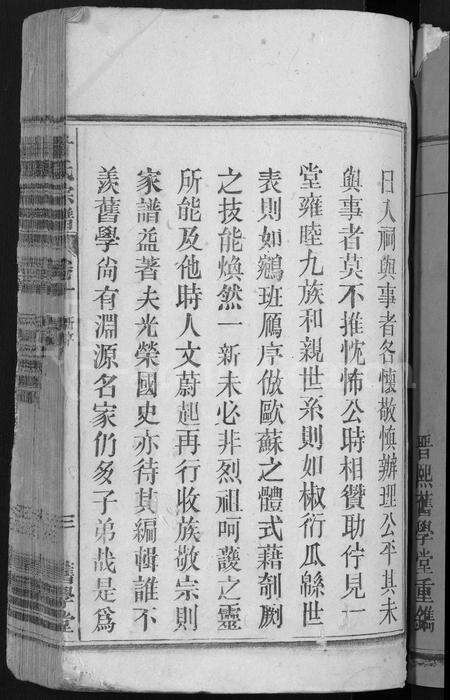 晋熙舊學堂重鐫
日入祠與事者各懷敬慎辦理公平其未
與事者莫不推忱怖公時相贊助佇見一
堂雍睦九族和親世系則如椒衍瓜緜世
表則如鵷班鴈序倣歐蘇之體式藉剞劂
之技能煥然一新未必非烈祖呵護之靈
所能及他時人文蔚起再行收族敬宗則
家譜益著夫光榮國史亦待其編輯誰不
羨舊學尙有淵源名家仍多子弟哉是爲
氏宗譜 卷一 新序 三 舊學堂